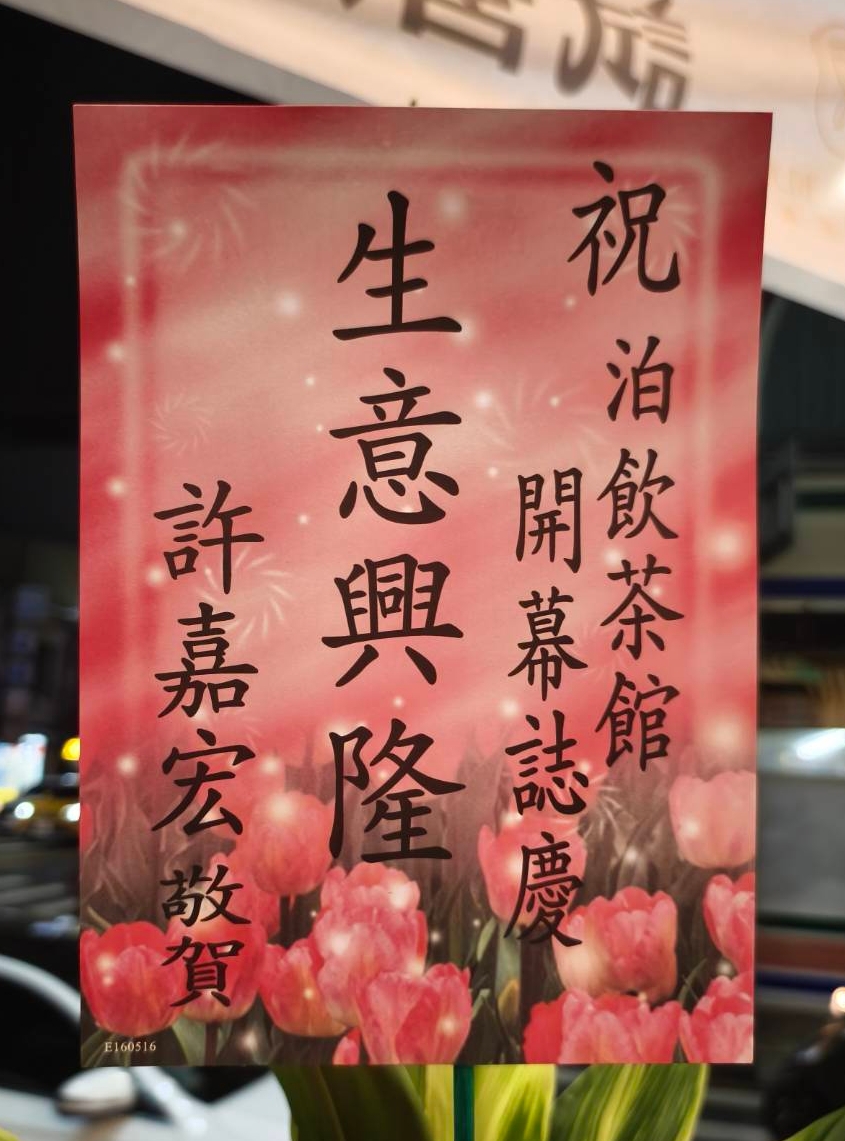 祝 泊飲茶館
開幕誌慶
生意興隆
許嘉宏 敬賀
E160516